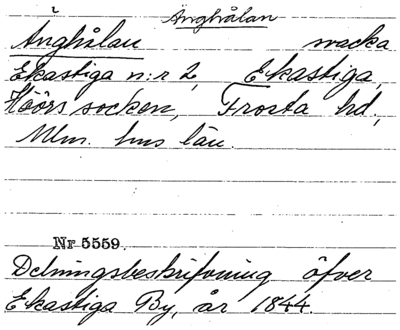 Änghålan
Änghålan wacka
Ekastiga n:r 2, Ekastiga,
Höörs socken, Frosta hd,
Mlm. hus län.
Nr 5559.
Delningsbeskrifvning öfver
Ekastiga By, år 1844.